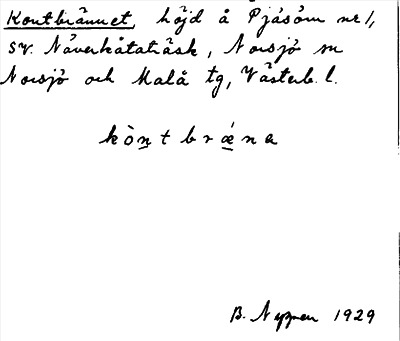 Kontbrännet, höjd å Pjäsöm nr 1,
sv. Näverkåtaträsk, Norsjö sn
Norsjö och Malå tg, Västerb. l.
kòntbrǽna
B. Nyman 1929